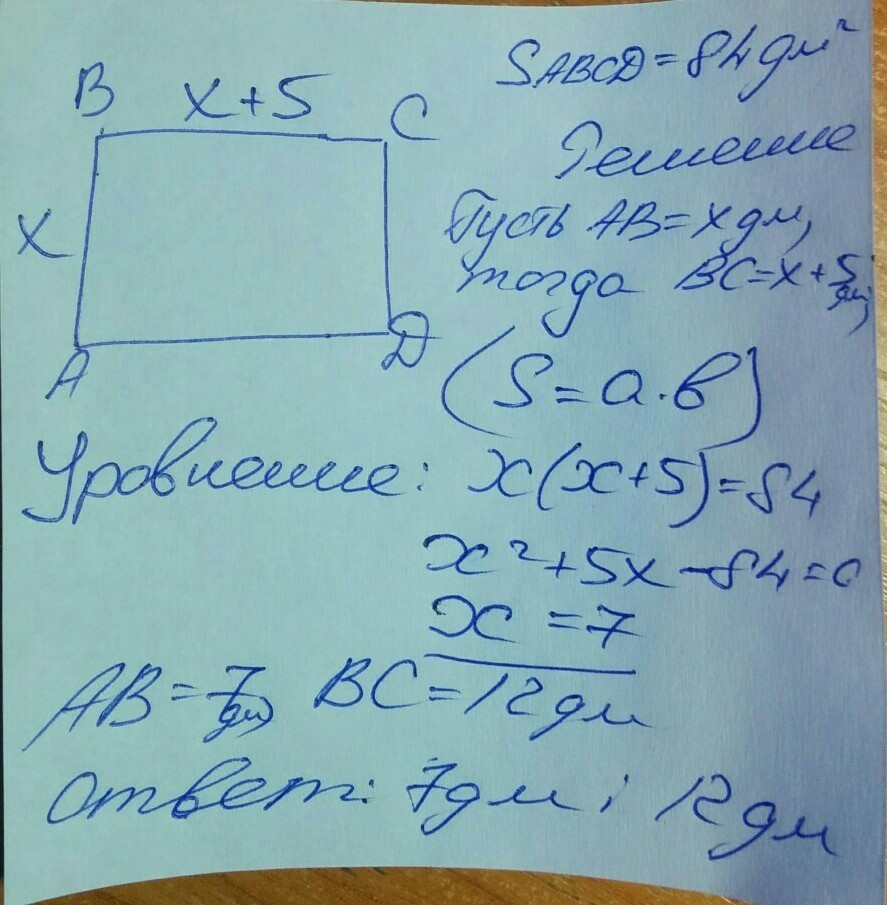 B x+5 C
x
A D
SABCD=84 дм²
Решение
Пусть AB=x дм,
тогда BC=x+5 дм,
(S=a·b)
Уровнение: x(x+5)=84
x²+5x-84=0
x=7
AB=7 дм, BC=12 дм
Ответ: 7 дм; 12 дм